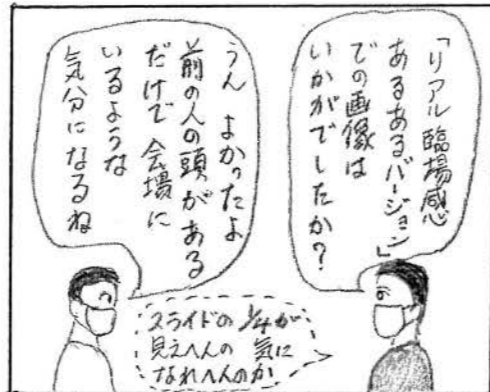 「リアル臨場感
あるあるバージョン」
での画像は
いかがでしたか？
うん よかったよ
前の人の頭がある
だけで 会場に
いるような
気分になるね
スライドの1/4が
見えへんの 気に
なれへんのか